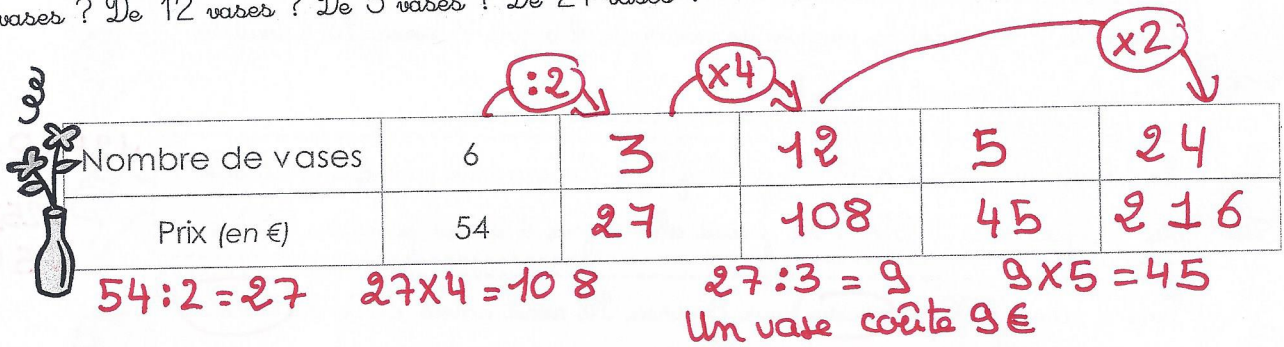 vases ? De 12 vases ? De 5 vases ? De 24 vases ?
:2 x4 x2
Nombre de vases 6 3 12 5 24
Prix (en €) 54 27 108 45 216
54:2=27 27x4=108 27:3=9 9x5=45
Un vase coûte 9€